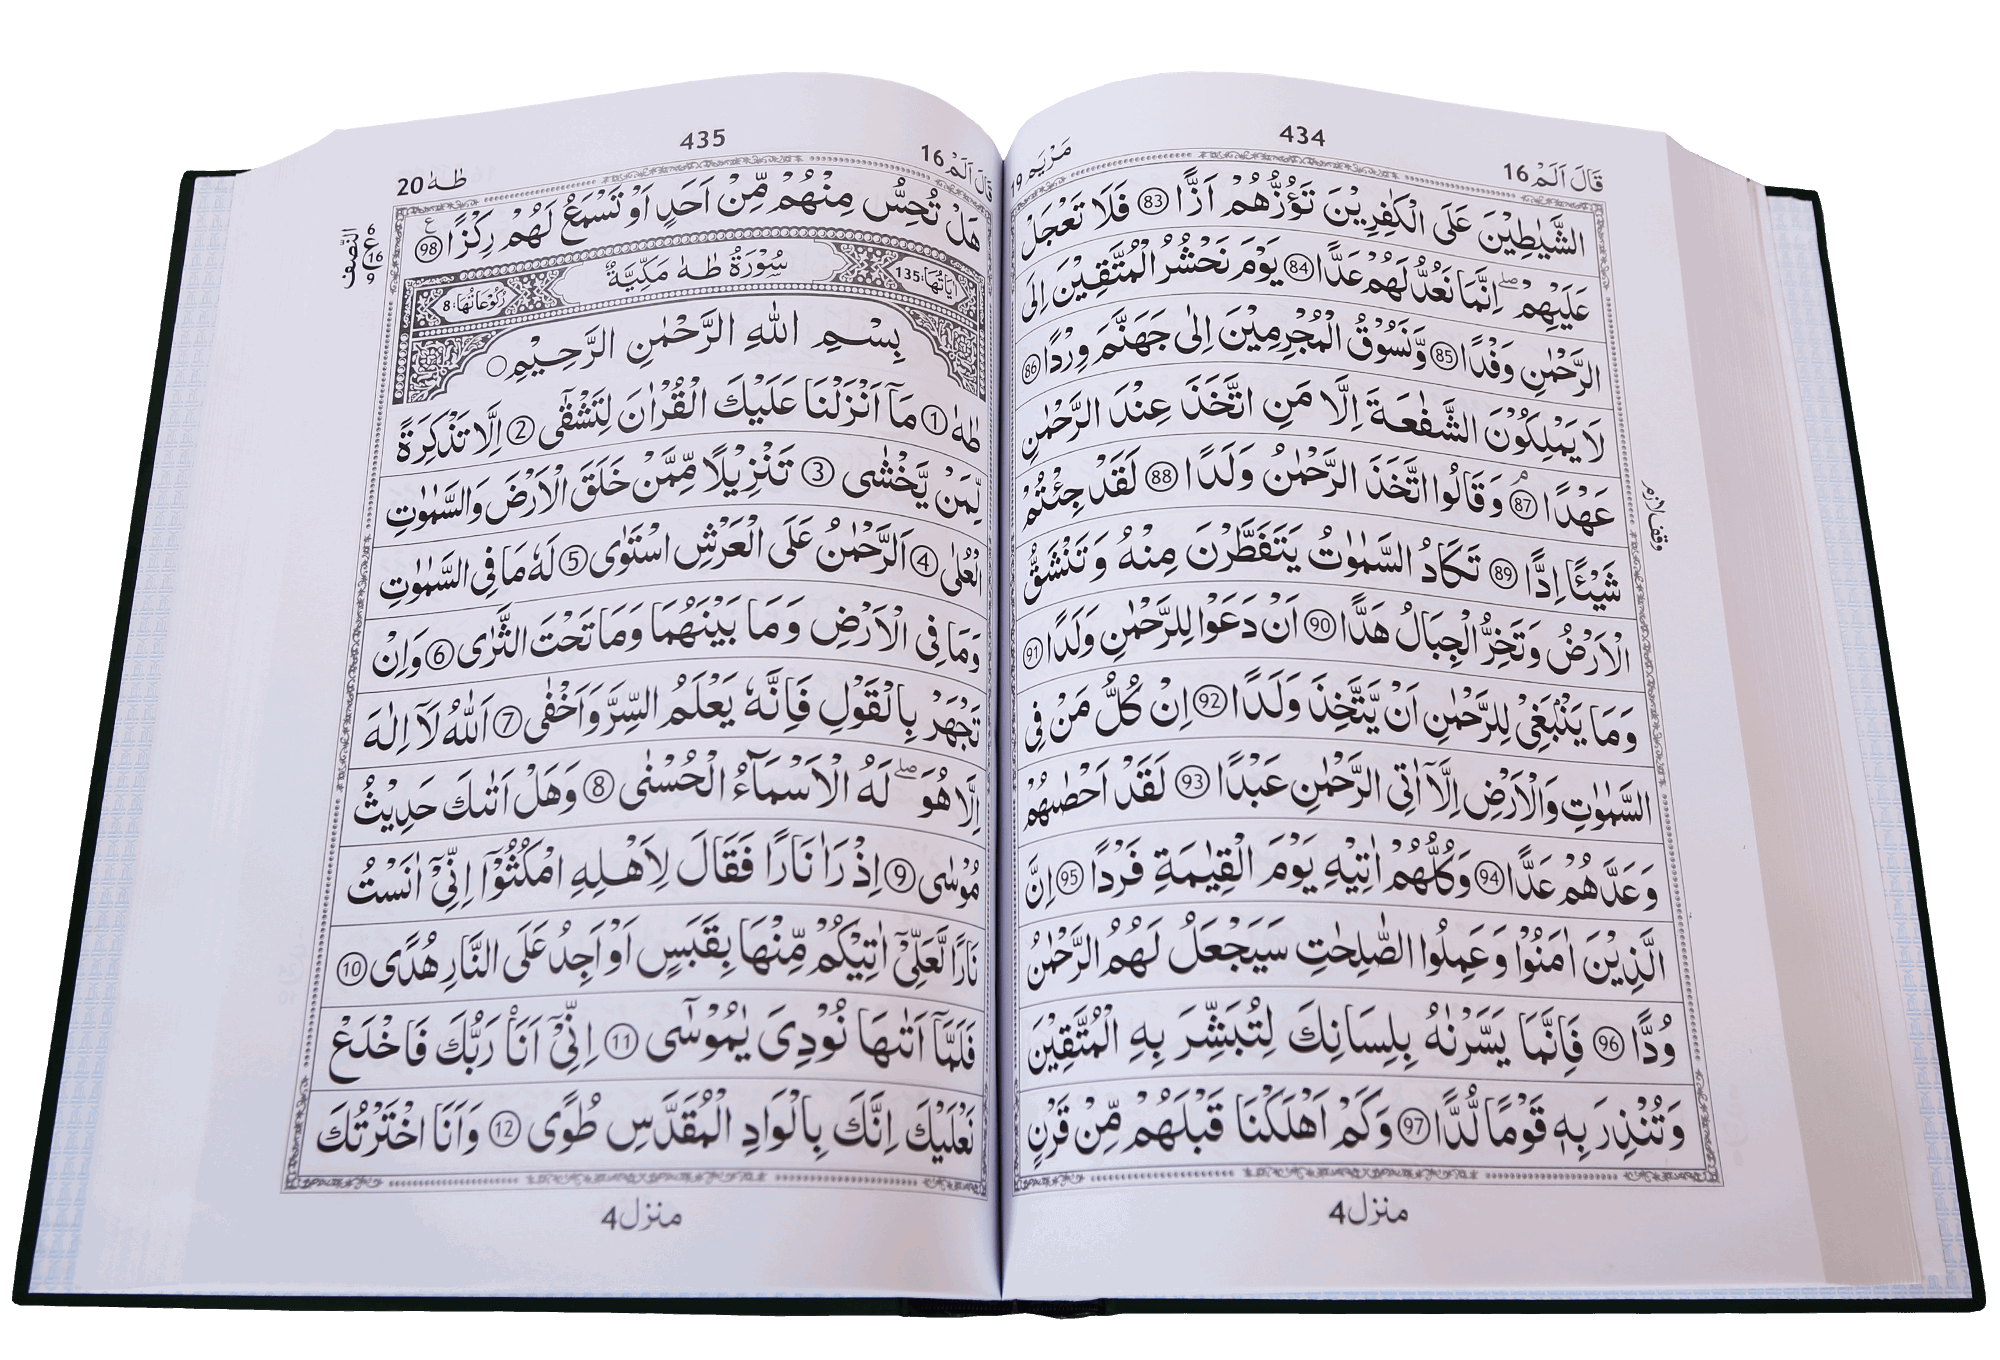 434
قَالَ اَلَمْ 16
مَرْيَم 19
الشَّيٰطِيْنَ عَلَى الْكٰفِرِيْنَ تَؤُزُّهُمْ اَزًّا ۝83 فَلَا تَعْجَلْ
عَلَيْهِمْ ۖ اِنَّمَا نَعُدُّ لَهُمْ عَدًّا ۝84 يَوْمَ نَحْشُرُ الْمُتَّقِيْنَ اِلَى
الرَّحْمٰنِ وَفْدًا ۝85 وَّنَسُوْقُ الْمُجْرِمِيْنَ اِلٰى جَهَنَّمَ وِرْدًا ۝86
لَا يَمْلِكُوْنَ الشَّفٰعَةَ اِلَّا مَنِ اتَّخَذَ عِنْدَ الرَّحْمٰنِ
عَهْدًا ۝87 وَقَالُوا اتَّخَذَ الرَّحْمٰنُ وَلَدًا ۝88 لَقَدْ جِئْتُمْ
شَيْئًا اِدًّا ۝89 تَكَادُ السَّمٰوٰتُ يَتَفَطَّرْنَ مِنْهُ وَتَنْشَقُّ
الْاَرْضُ وَتَخِرُّ الْجِبَالُ هَدًّا ۝90 اَنْ دَعَوْا لِلرَّحْمٰنِ وَلَدًا ۝91
وَمَا يَنْۢبَغِيْ لِلرَّحْمٰنِ اَنْ يَّتَّخِذَ وَلَدًا ۝92 اِنْ كُلُّ مَنْ فِي
السَّمٰوٰتِ وَالْاَرْضِ اِلَّاۤ اٰتِى الرَّحْمٰنِ عَبْدًا ۝93 لَقَدْ اَحْصٰىهُمْ
وَعَدَّهُمْ عَدًّا ۝94 وَكُلُّهُمْ اٰتِيْهِ يَوْمَ الْقِيٰمَةِ فَرْدًا ۝95 اِنَّ
الَّذِيْنَ اٰمَنُوْا وَعَمِلُوا الصّٰلِحٰتِ سَيَجْعَلُ لَهُمُ الرَّحْمٰنُ
وُدًّا ۝96 فَاِنَّمَا يَسَّرْنٰهُ بِلِسَانِكَ لِتُبَشِّرَ بِهِ الْمُتَّقِيْنَ
وَتُنْذِرَ بِهٖ قَوْمًا لُّدًّا ۝97 وَكَمْ اَهْلَكْنَا قَبْلَهُمْ مِّنْ قَرْنٍ
وقف لازم
منزل 4
435
قَالَ اَلَمْ 16
طٰهٰ 20
هَلْ تُحِسُّ مِنْهُمْ مِّنْ اَحَدٍ اَوْ تَسْمَعُ لَهُمْ رِكْزًا ۝98
النّصف
16
اٰيَاتُهَا: 135
سُوْرَةُ طٰهٰ مَكِّيَّةٌ
رُكُوْعَاتُهَا: 8
بِسْمِ اللّٰهِ الرَّحْمٰنِ الرَّحِيْمِ
طٰهٰ ۝1 مَاۤ اَنْزَلْنَا عَلَيْكَ الْقُرْاٰنَ لِتَشْقٰۤى ۝2 اِلَّا تَذْكِرَةً
لِّمَنْ يَّخْشٰى ۝3 تَنْزِيْلًا مِّمَّنْ خَلَقَ الْاَرْضَ وَالسَّمٰوٰتِ
الْعُلٰى ۝4 اَلرَّحْمٰنُ عَلَى الْعَرْشِ اسْتَوٰى ۝5 لَهٗ مَا فِي السَّمٰوٰتِ
وَمَا فِي الْاَرْضِ وَمَا بَيْنَهُمَا وَمَا تَحْتَ الثَّرٰى ۝6 وَاِنْ
تَجْهَرْ بِالْقَوْلِ فَاِنَّهٗ يَعْلَمُ السِّرَّ وَاَخْفٰى ۝7 اَللّٰهُ لَاۤ اِلٰهَ
اِلَّا هُوَ ۖ لَهُ الْاَسْمَآءُ الْحُسْنٰى ۝8 وَهَلْ اَتٰىكَ حَدِيْثُ
مُوْسٰى ۝9 اِذْ رَاٰ نَارًا فَقَالَ لِاَهْلِهِ امْكُثُوْۤا اِنِّيْۤ اٰنَسْتُ
نَارًا لَّعَلِّيْۤ اٰتِيْكُمْ مِّنْهَا بِقَبَسٍ اَوْ اَجِدُ عَلَى النَّارِ هُدًى ۝10
فَلَمَّاۤ اَتٰىهَا نُوْدِيَ يٰمُوْسٰۤى ۝11 اِنِّيْۤ اَنَا رَبُّكَ فَاخْلَعْ
نَعْلَيْكَ اِنَّكَ بِالْوَادِ الْمُقَدَّسِ طُوًى ۝12 وَاَنَا اخْتَرْتُكَ
منزل 4